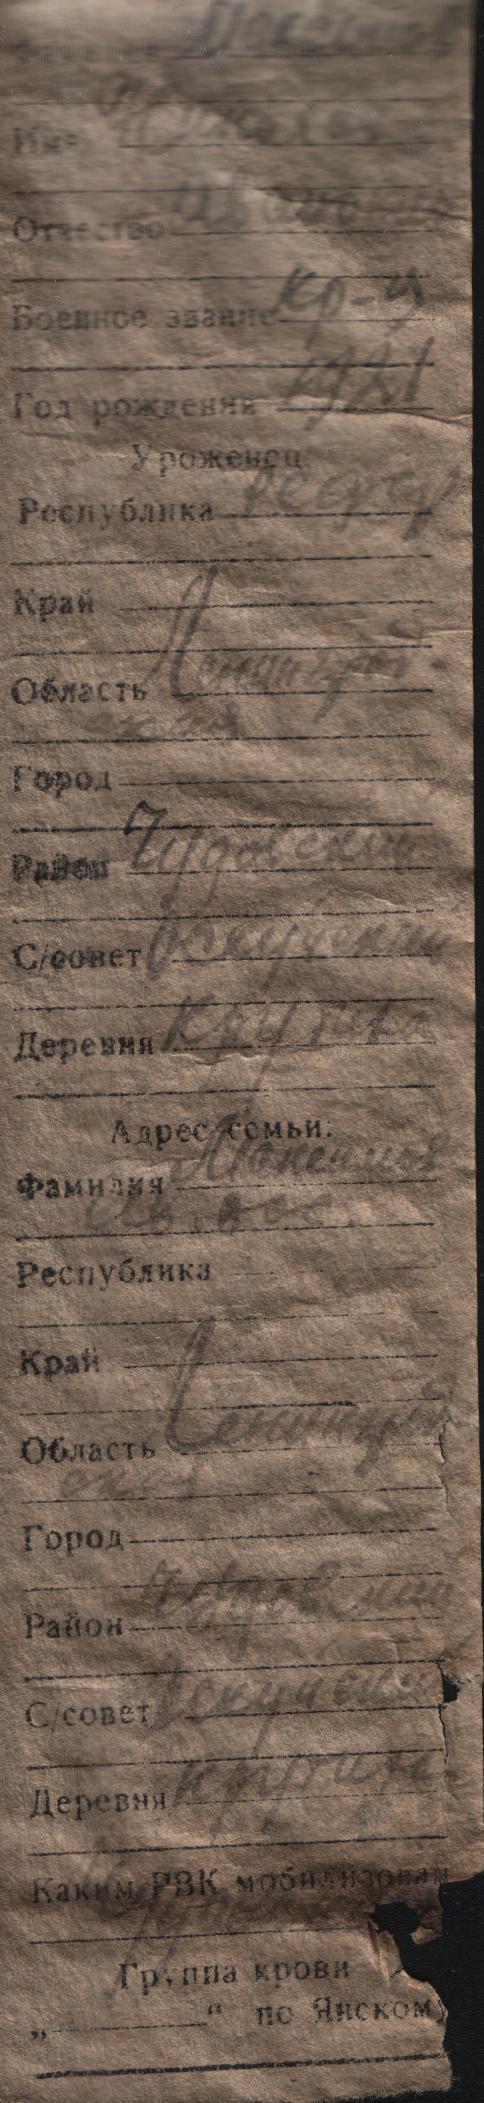 Фамилия
Имя
Отчество Иванович
Боенное звание Кр-ц
Год рождения 1921
Уроженец
Республика РСФСР
Край
Область Ленинград-
ская
Город
Район Чудовский
С/совет Оскуйский
Деревня Крутиха
Адрес семьи:
Фамилия
Республика
Край
Область Ленинград
ская
Город
Район Чудовский
С/совет Оскуйский
Деревня Крутиха
Каким РВК мобилизован
Группа крови
„ “ по Янскому